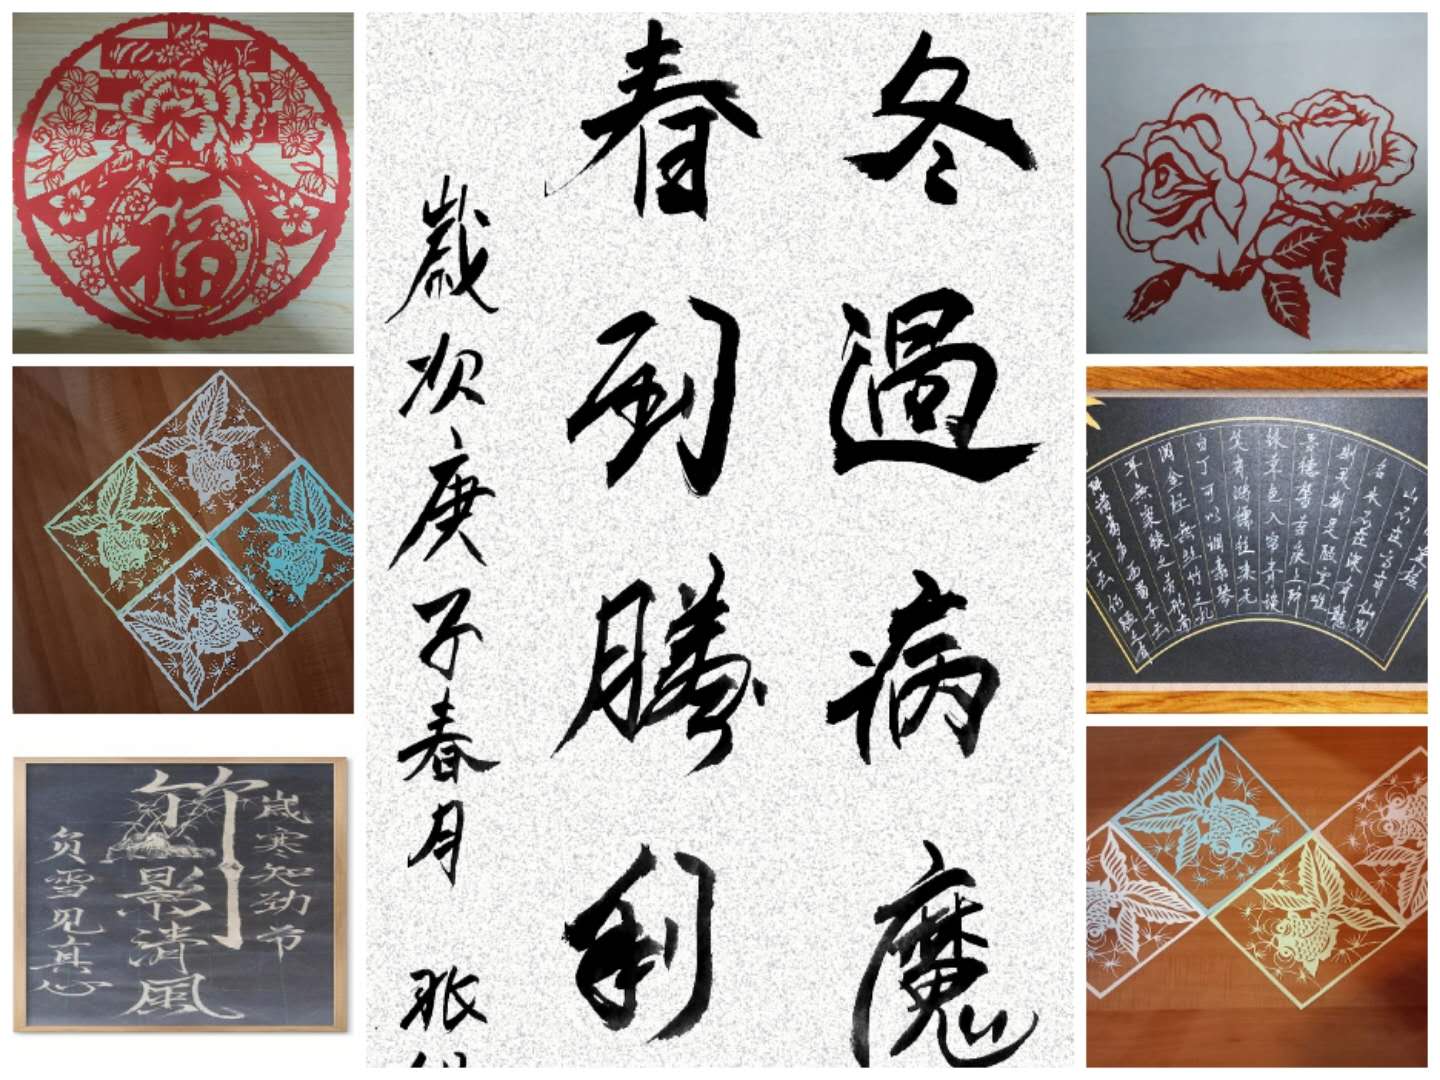 春
福
歲寒知劲节
竹影清風
负雪见真心
冬過病魔
春到勝利
歲次庚子春月 張
山不在高有仙则
名水不在深有龍
则灵斯是陋室唯
吾德馨苔痕上阶
緑草色入帘青谈
笑有鸿儒往来无
白丁可以调素琴
阅金经無丝竹之乱
耳無案牍之劳形南
子云何陋之有